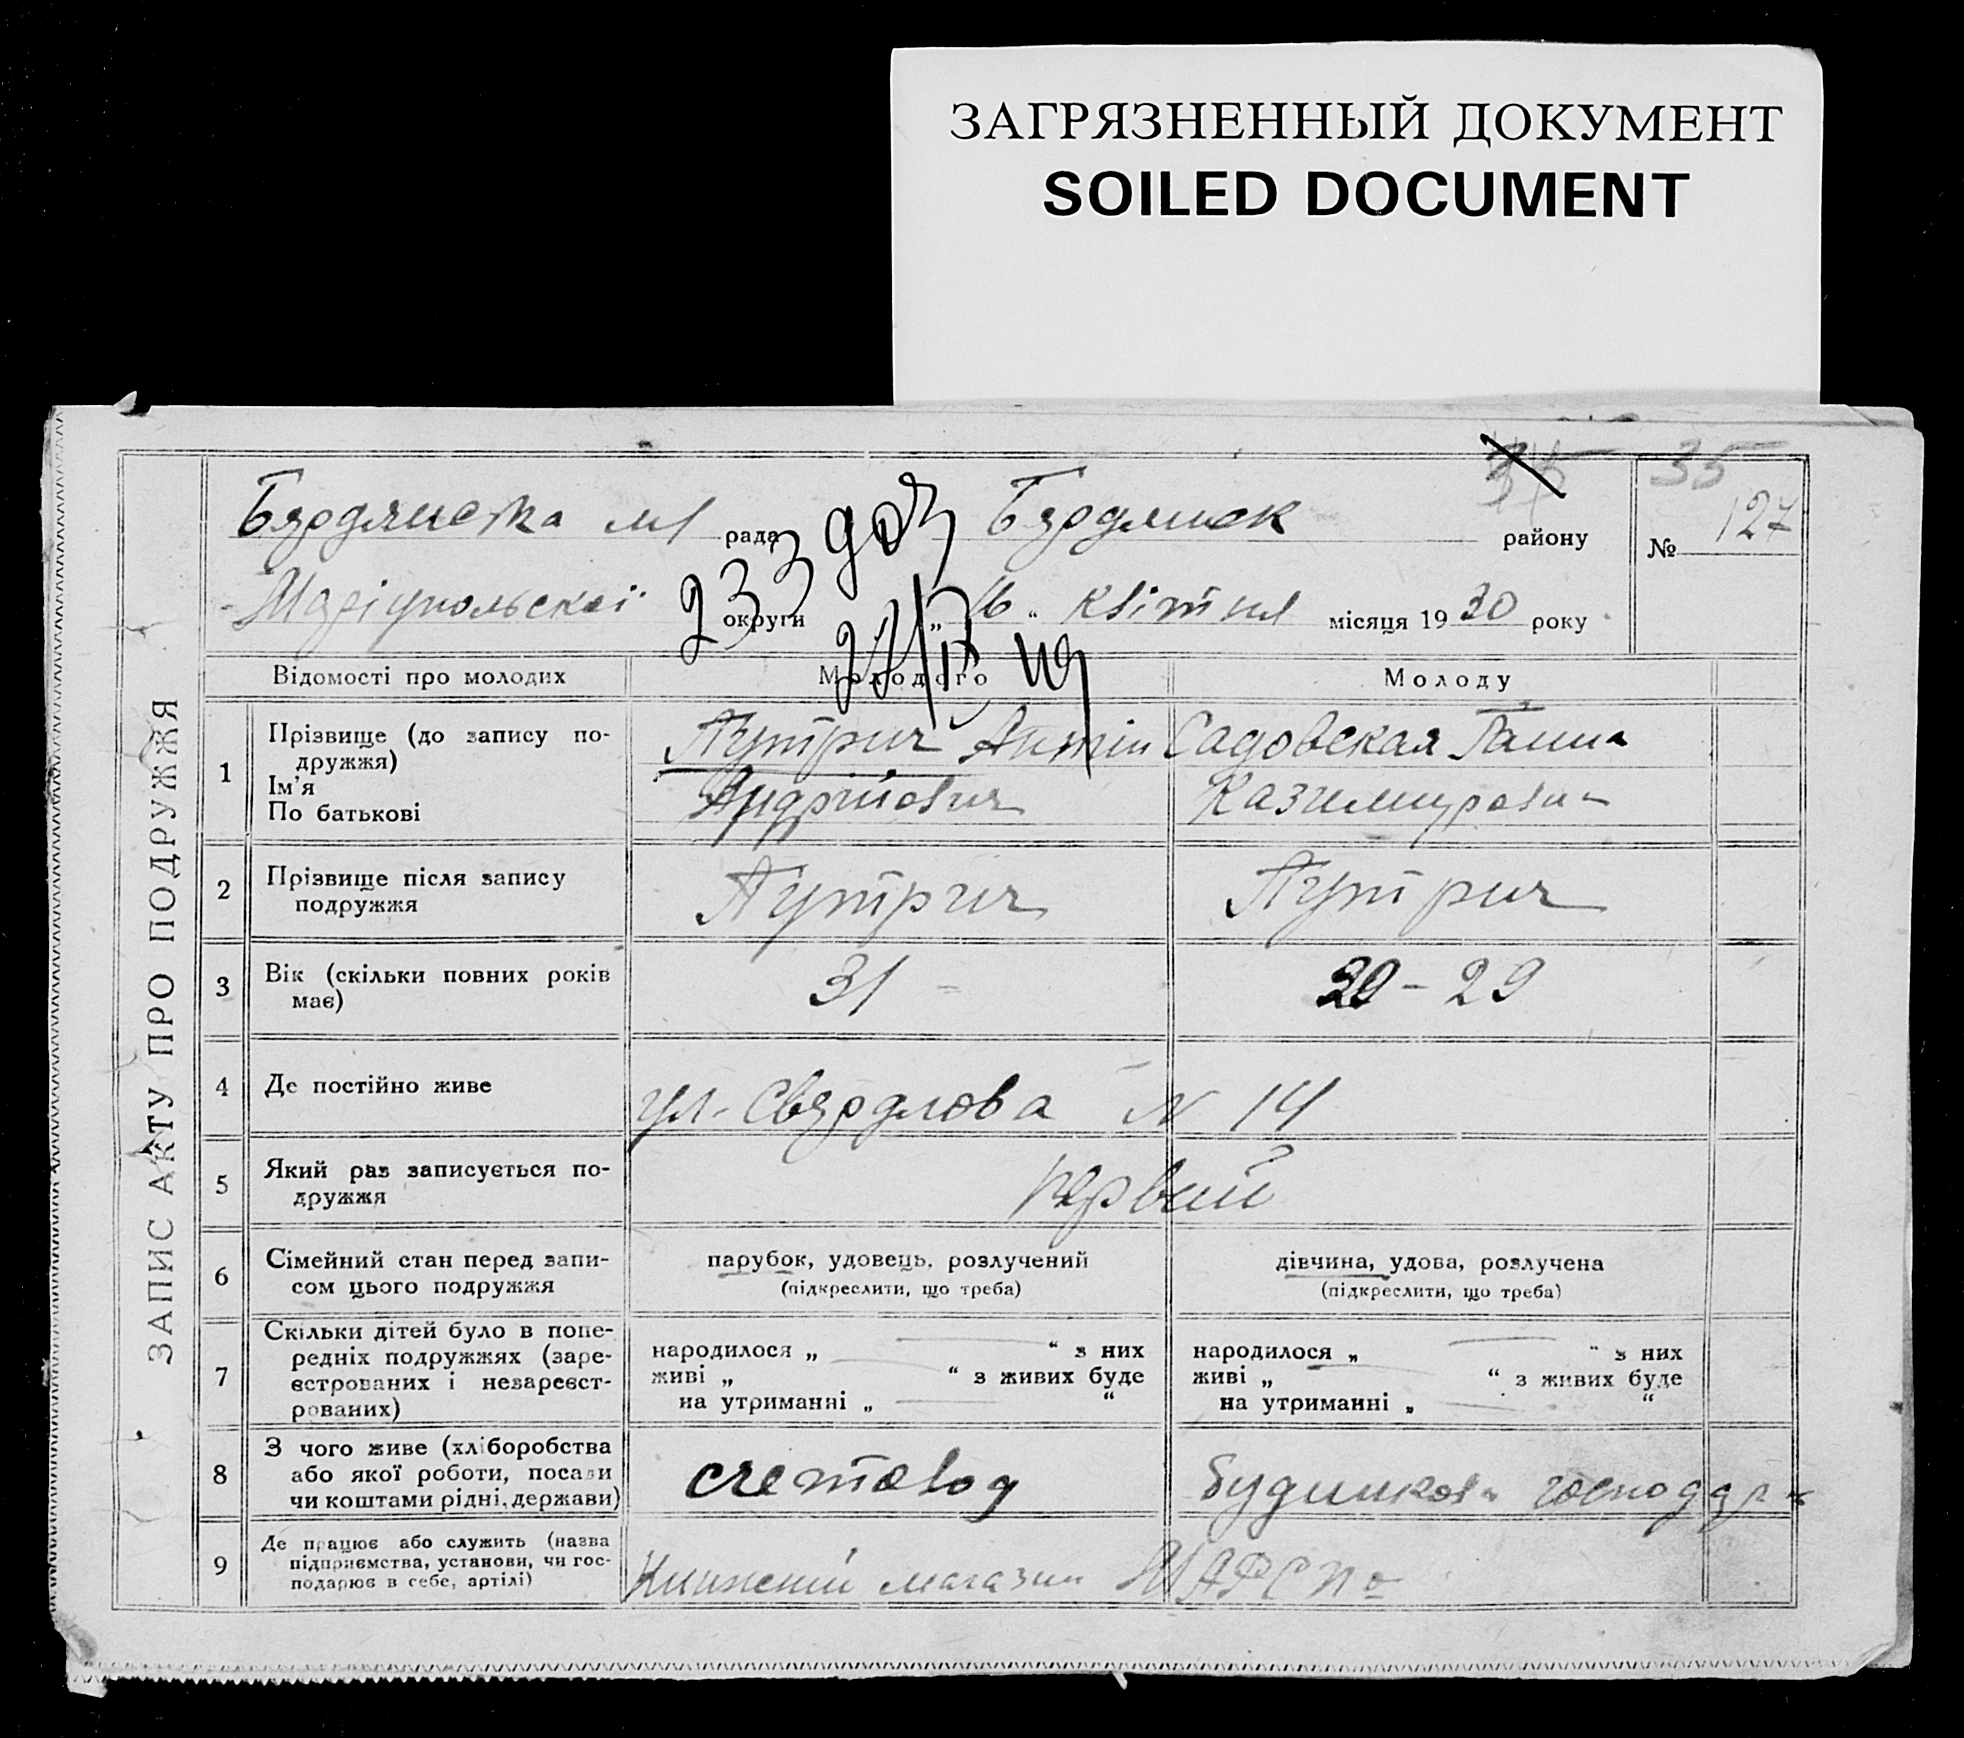 ЗАГРЯЗНЕННЫЙ ДОКУМЕНТ
SOILED DOCUMENT
35
Бярдянська м/ рада Бярдянск району № 127
Маріупольскої округи „16“ квітня місяця 1930 року
233
ЗАПИС АКТУ ПРО ПОДРУЖЖЯ
Відомості про молодих Молодого Молоду
1 Прізвище (до запису по-
дружжя)
Ім’я
По батькові
Путрич Антін
Андрійович
Садовская Ганна
Казимировна
2 Прізвище після запису
подружжя
Путрич Путрич
3 Вік (скільки повних років
має)
31 - 30 - 29
4 Де постійно живе
ул. Свярдлова N 14
5 Який раз записується по-
дружжя
первий
6 Сімейний стан перед запи-
сом цього подружжя
парубок, удовець, розлучений
(підкреслити, що треба)
дівчина, удова, розлучена
(підкреслити, що треба)
7 Скільки дітей було в попе-
редніх подружжях (заре-
єстрованих і незареєст-
рованих)
народилося „ “ з них
живі „ “ з живих буде
на утриманні „ “
народилося „ “ з них
живі „ “ з живих буде
на утриманні „ “
8 З чого живе (хліборобства
або якої роботи, посади
чи коштами рідні, держави)
счетовод
будинкова господарк
9 Де працює або служить (назва
підприємства, установи, чи гос-
подарює в себе, артілі)
Книжний магазин